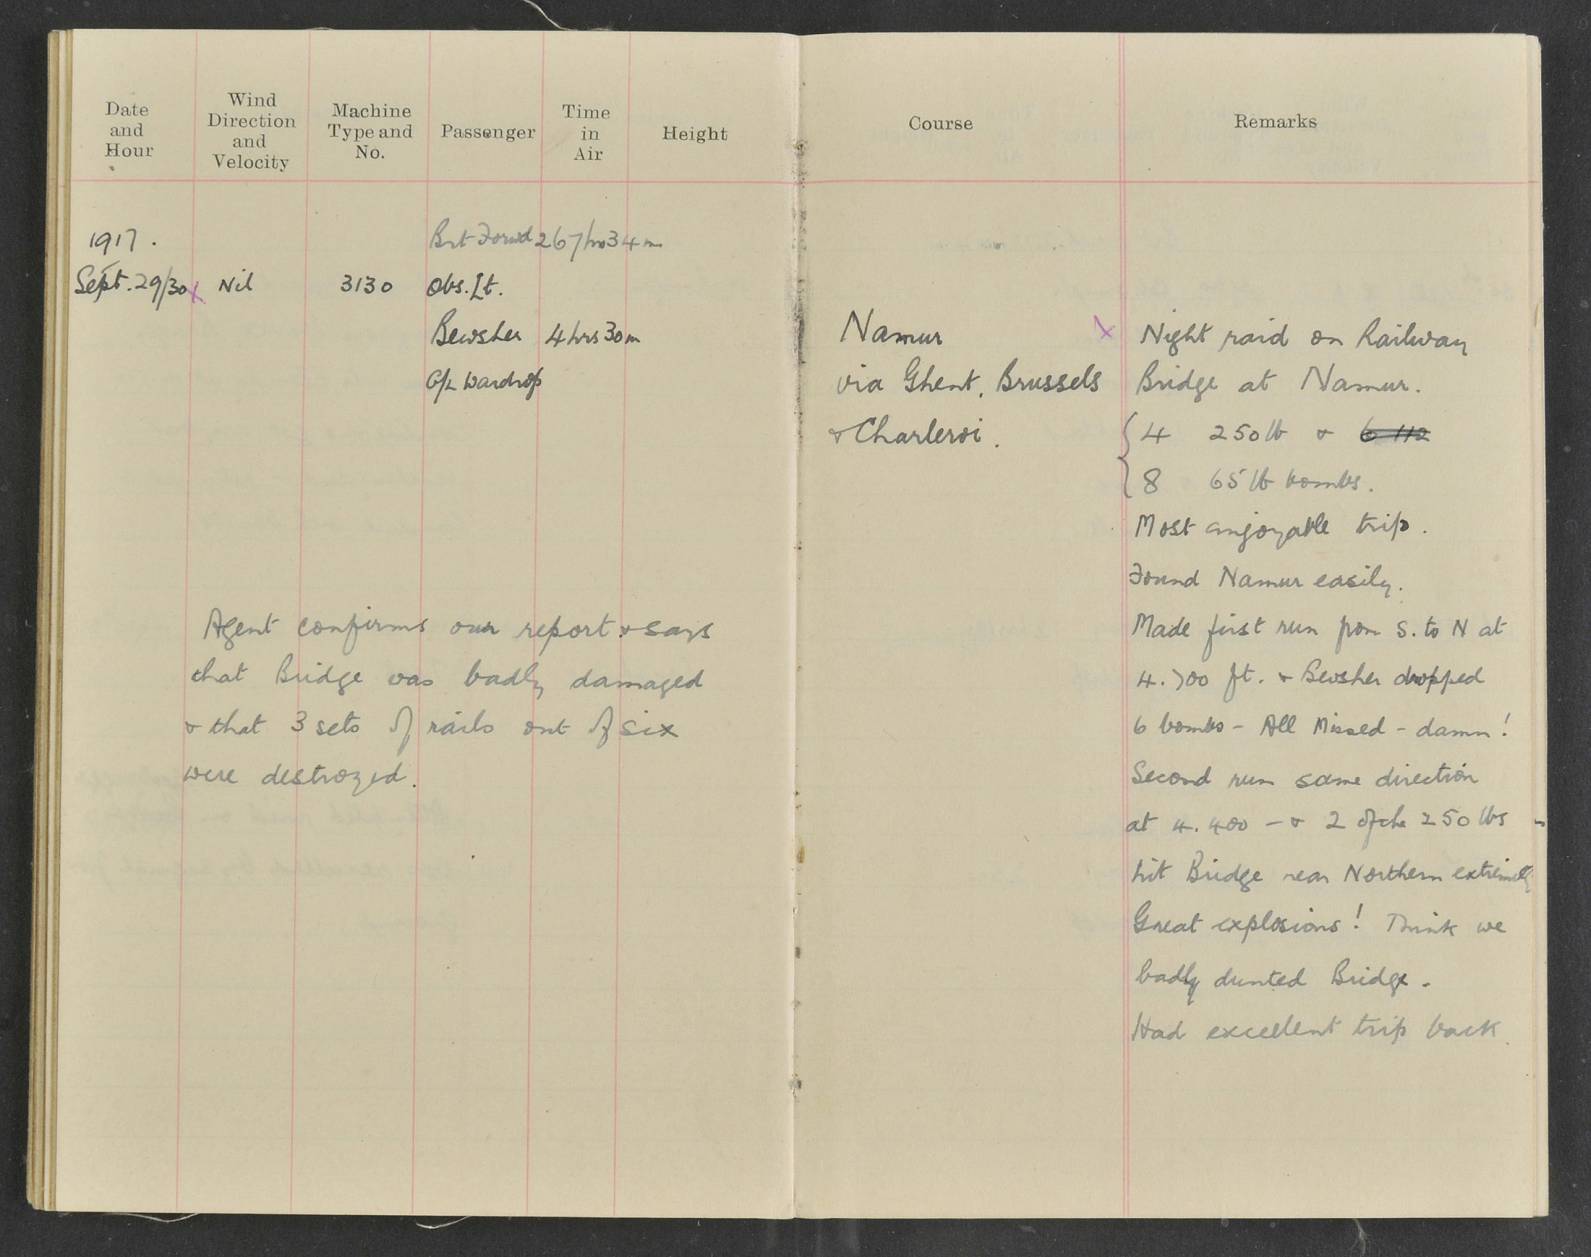 Date and Hour
Wind Direction and Velocity
Machine Type and No.
Passenger
Time in Air
Height
Course
Remarks
1917.
Brt Forwd 267hrs34m
Sept. 29/30 x Nil 3130 Obs. Lt.
Bewsher 4hrs30m
G/L Wardrop
Agent confirms our report & says
that Bridge was badly damaged
& that 3 sets of rails out of six
were destroyed.
Namur
via Ghent, Brussels
& Charleroi.
x Night raid on Railway
Bridge at Namur.
4 250 lb & 6 112
8 65 lb bombs.
Most enjoyable trip.
Found Namur easily.
Made first run from S. to N at
4.700 ft. & Bewsher dropped
6 bombs - All Missed - damn!
Second run same direction
at 4.400 - & 2 of the 250 lbs
hit Bridge near Northern extremity
Great explosions! Think we
badly dunted Bridge.
Had excellent trip back.